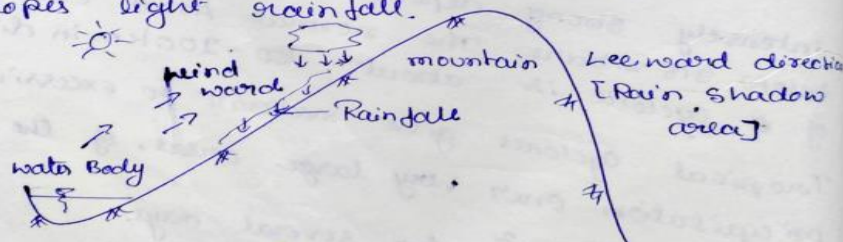 opes light rainfall.
wind
ward
mountain
Leeward directio
[Rain shadow
area]
Rainfall
water Body